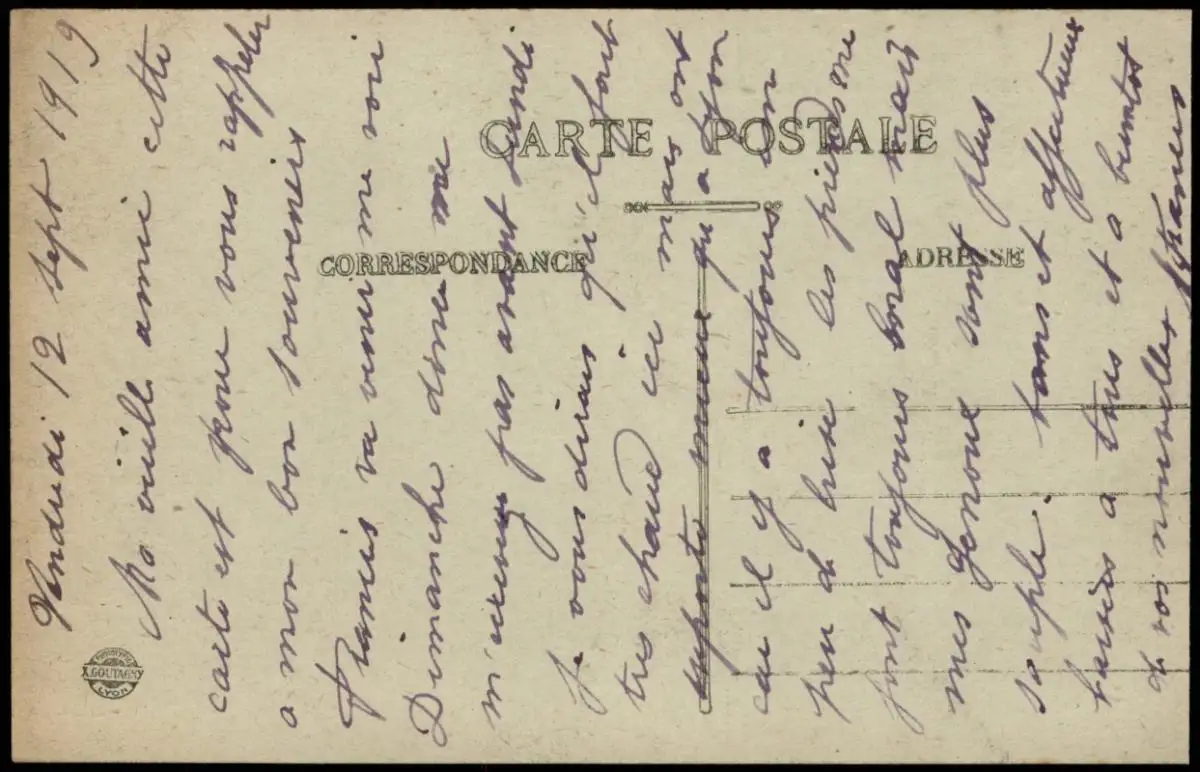 CARTE POSTALE
CORRESPONDANCE
ADRESSE
PHOTOTYPIE
X. GOUTAGNY
LYON
Vendredi 12 Sept 1919
Ma vieille amie cette
carte est pour vous rappeler
a mon bon souvenirs
va venir me voir
Dimanche donc
m'ecrivez pas avant Lundi
Je vous dirais qu'il fait
tres chaud ici mais on
suporte mieux qu a Lyon
car il y a toujours un
peu de brise les pieds me
font toujours bien mal mais
mes genoux sont plus
souple.
baisers a tous et a bientot
de vos nouvelles